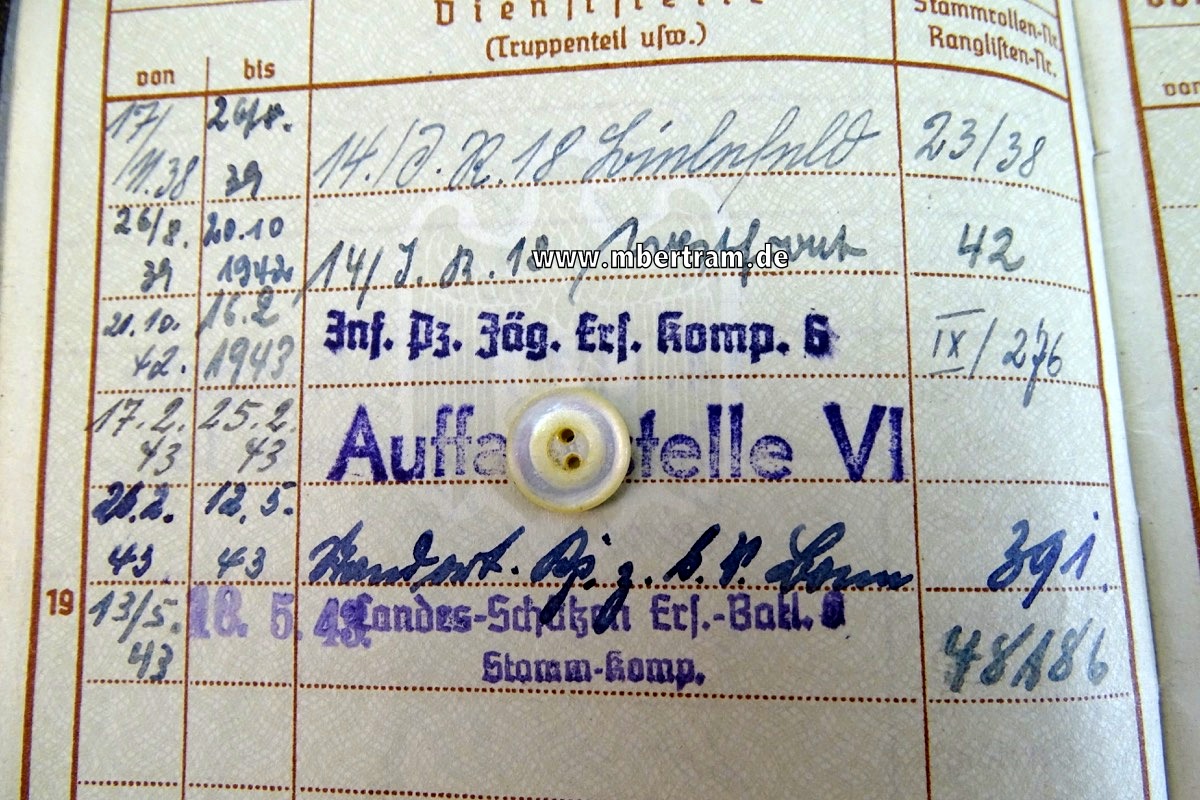 Dienststelle
(Truppenteil usw.)
Stammrollen-Nr.
Ranglisten-Nr.
von bis
von
17/ 26/8.
14./J.R.18 Bielefeld 23/38
11.38 39
26/8. 20.10
14/J.R.18 Westfront 42
39 1942
www.mbertram.de
21.10. 16.2
Inf. Pz. Jäg. Ers. Komp. 6 IX/276
42. 1943
17.2. 25.2.
Auffa telle VI
43 43
26.2. 12.5.
Standort. Kp. z. b. V. Bonn 391
43. 43
19 13/5. 18. 5. 43. Landes-Schützen Ers.-Batl. 6
43 Stamm-Komp. 48/186